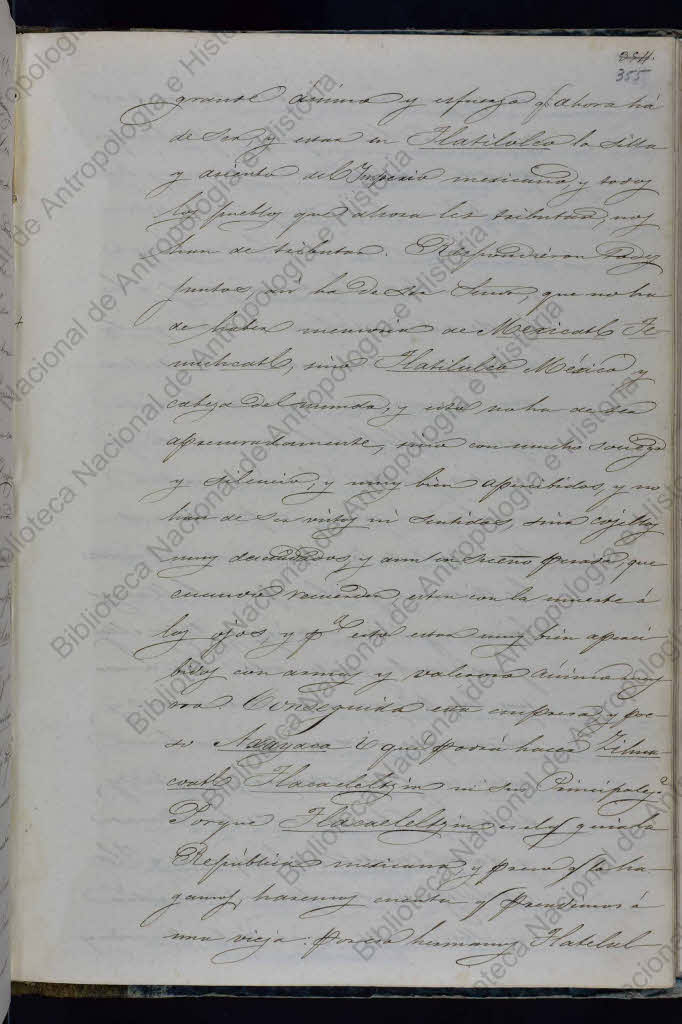 354.
355
grande ánimo y esfuerzo q.e ahora há
de ser, y estar en Tlatilolco la silla
y asiento del Imperio mexicano, y todos
los pueblos que ahora les tributan, nos
han de tributar. Respondieron todos
juntos, así ha de ser Señor, que no ha
de haber memoria de Mexicatl Te-
nuchcatl, sino Tlatilulco México y
cabeza del mundo, y esto no ha de ser
apresuradamente, sino con mucho sosiego
y silencio, y muy bien apercibidos, y no
han de ser vistos ni sentidos, sino cojellos
muy descuidados, y aun en sueño pesado, que
cuando recuerden esten con la muerte á
los ojos, y p.a esto estar muy bien aperci
bidos con armas y valeroso ánimo
Conseguida esta empresa, y pre-
so Axayaca ¿que podrá hacer Zihua-
coatl Tlacaeleltzin ni sus Principales?
Porque Tlacaeleltzin es el q guia la
República mexicana, y preso q lo ha-
gamos, haremos cuenta q prendimos á
una vieja: por eso hermanos Tlatelul
Biblioteca Nacional de Antropología e Historia